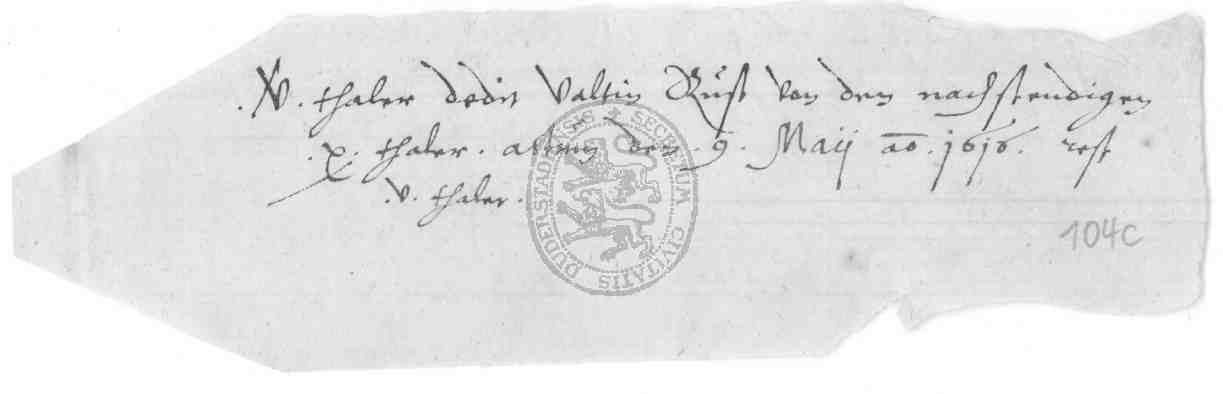 . XV . thaler dedit Valtin Rust von den nachstendigen
. x . thaler . den . 9 . Maij ao . 1616 . rest
. v . thaler .
SECRETUM CIVITATIS DUDERSTADENSIS
104c